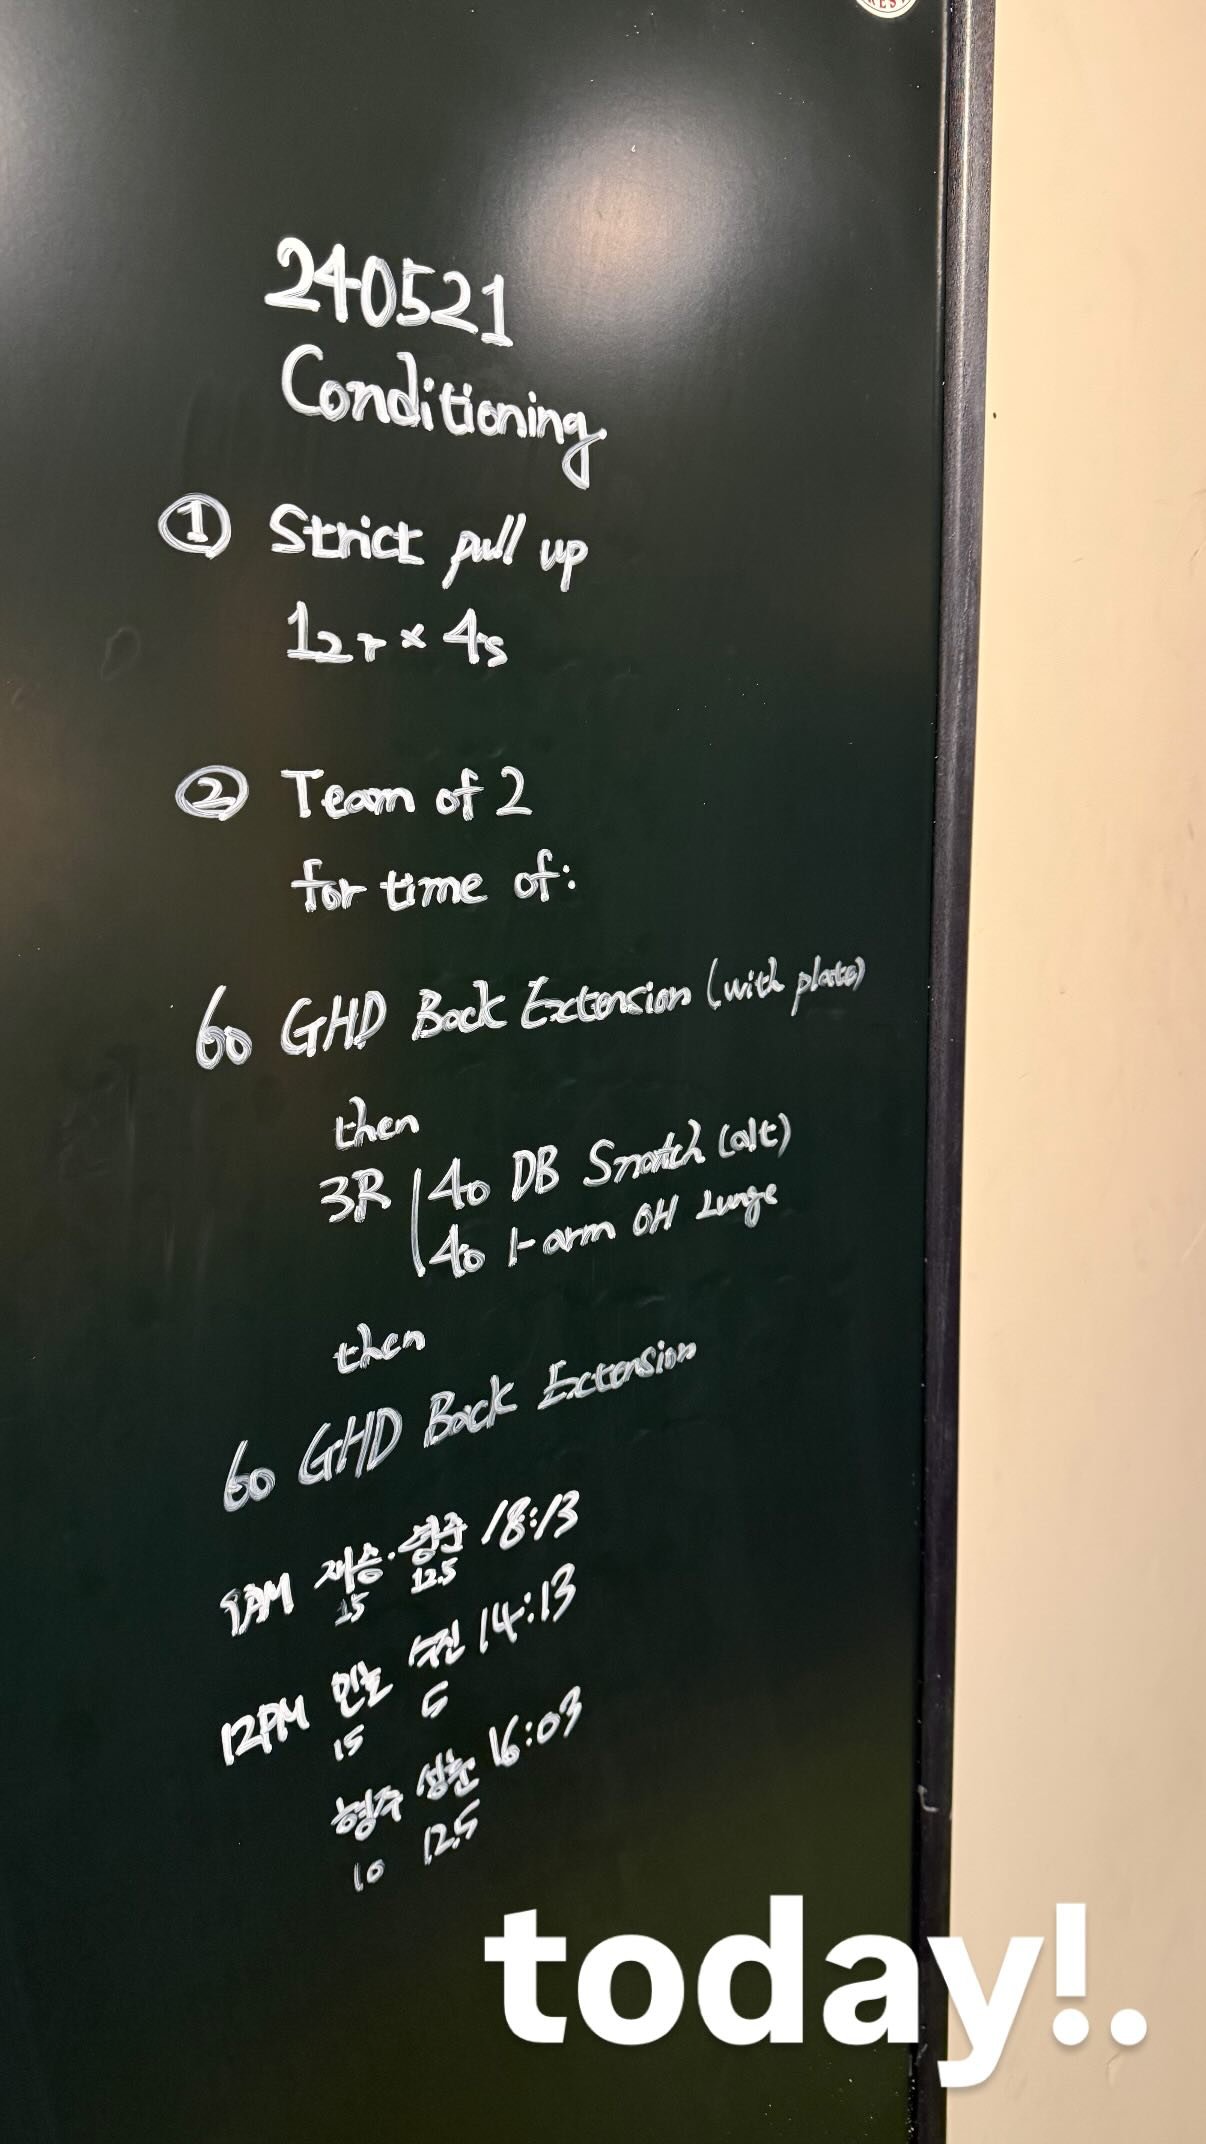 REST
240521
Conditioning
① Strict pull up
12r × 4s
② Team of 2
for time of:
60 GHD Back Extension (with plate)
then
3R 40 DB Snatch (alt)
40 1-arm OH Lunge
then
60 GHD Back Extension
9AM 재승·형준 18:13
15 12.5
12PM 민호 수진 14:13
15 5
형주 성훈 16:03
10 12.5
today!.